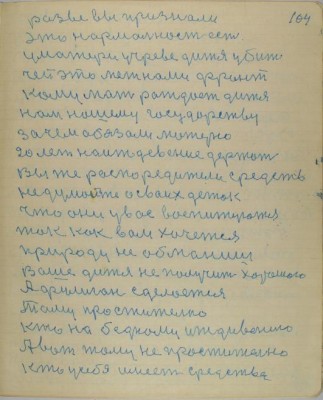 104
разве вы признали
это нармалност есть
у матери учреве дитя убит
чей это
кому мат раждает дитя
нам нашему государству
зачем обязали матерю
20 лет наиждевение держат
Вы же распоредители средств
недумайте освоих деток
что они у вас воспитуются
так как вам хочется
природу не обманиш
Ваше дитя не получит
А сделается
Тому простително
кто на бедному иждевению
А вот тому не простително
кто усебя имеет средства